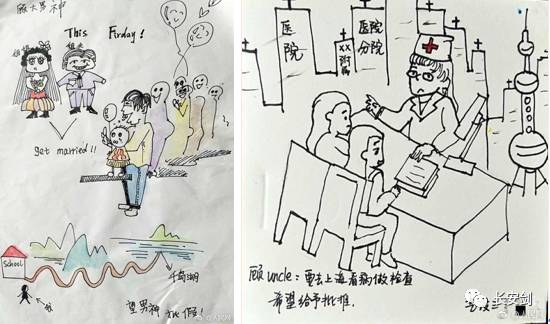 顾大男神
This Firday!
姐姐
姐夫
get married!!
School
我
千岛湖
望男神批假!
医院
XX
医院
分院
顾uncle:要去上海看病做检查
希望给予批准.
长安剑